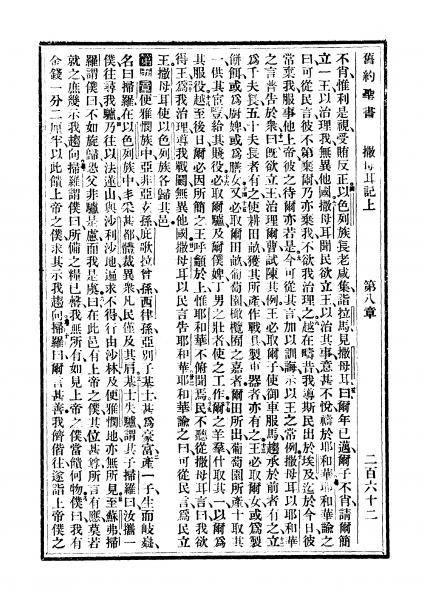 舊約聖書 撒母耳記上 第八章 二百六十二
不肖惟利是視受賄反正以色列族長老咸集詣拉馬見撒母耳曰爾年已邁爾子不肖請爾簡
立一王以治理我無異他國撒母耳聞民欲立王以治其事意甚不悅禱於耶和華耶和華諭之
曰可從民言彼不第棄爾乃亦棄我不欲我治理之越在疇昔我導斯民出於埃及迄於今日彼
常棄我服事他上帝彼之待爾亦若是今可從其言加以訓誨示以王之常例撒母耳以耶和華
之言普告於衆曰旣欲立王治理爾曹試陳其例王必取爾子使御車服馬趨承於前者有之立
為千夫長五十夫長者有之使耕田畝獲其所產作戰具製車器者亦有之王必取爾女或為製
餅餌或為廚婢或為膳女又必取爾田畝葡萄園橄欖園之嘉者爾田所出葡萄園所產十取其
一供其宦豎給其賤役必取爾驢及爾僕婢丁男之壯者使之工作爾之羊羣什取其一以爾為
其服役越至後日爾必因所簡之王呼籲於上惟耶和華不俯聞焉民不聽從撒母耳言曰我欲
得王為我治理導我戰鬬無異他國撒母耳以民言告耶和華耶和華諭之曰可從民言為民立
王撒母耳使以色列族各歸其邑
第九章 便雅憫族中亞非亞玄孫庇歌拉曾孫西律孫亞別子基士甚為豪富產一子生而岐嶷
名曰掃羅在以色列族中丰采甚都體裁異衆凡民僅及其肩基士失驢謂其子掃羅曰汝攜一
僕往尋我驢乃往以法蓮山與沙利沙地遍求不得行由沙林及便雅憫地亦無所見至蘇弗掃
羅謂僕曰不如旋歸恐父非驢是慮而我是虞曰在此邑有上帝之僕其位甚尊所言有應莫若
就之庶幾示我趨向掃羅謂僕曰所備之糧已罄我無所有如見上帝之僕當饋何物僕曰我有
金錢一分二厘半以此饋上帝之僕求其示我趨向掃羅曰爾言甚善我儕偕往遂詣上帝僕之